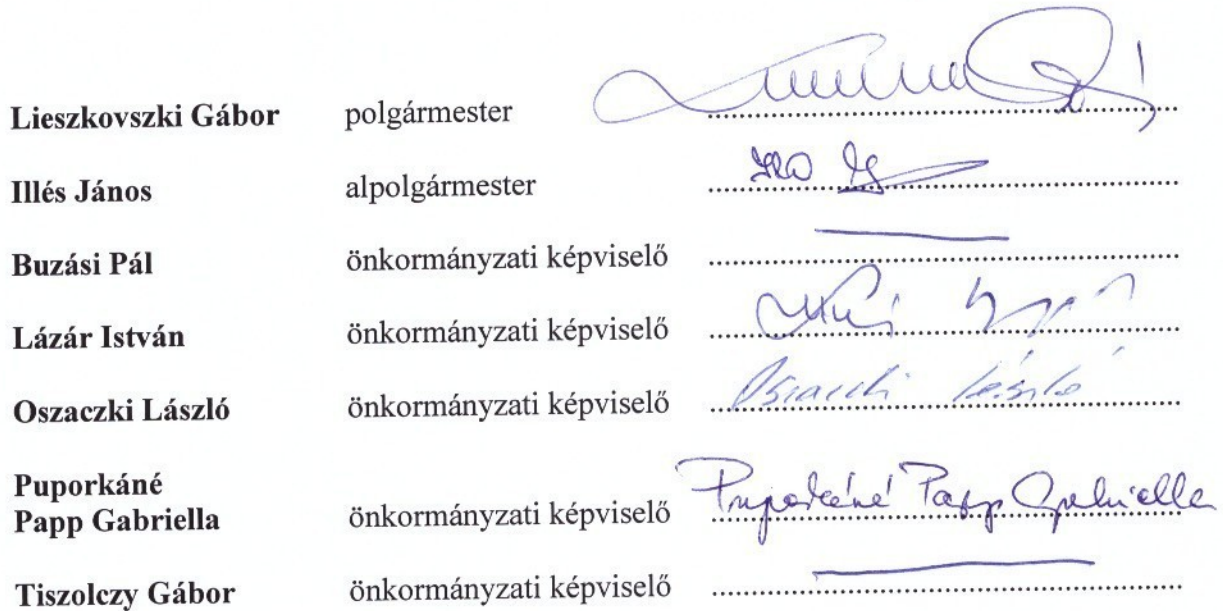 Lieszkovszki Gábor polgármester
Illés János alpolgármester
Buzási Pál önkormányzati képviselő
Lázár István önkormányzati képviselő
Oszaczki László önkormányzati képviselő Oszaczki László
Puporkáné
Papp Gabriella önkormányzati képviselő Puporkáné Papp Gabriella
Tiszolczy Gábor önkormányzati képviselő